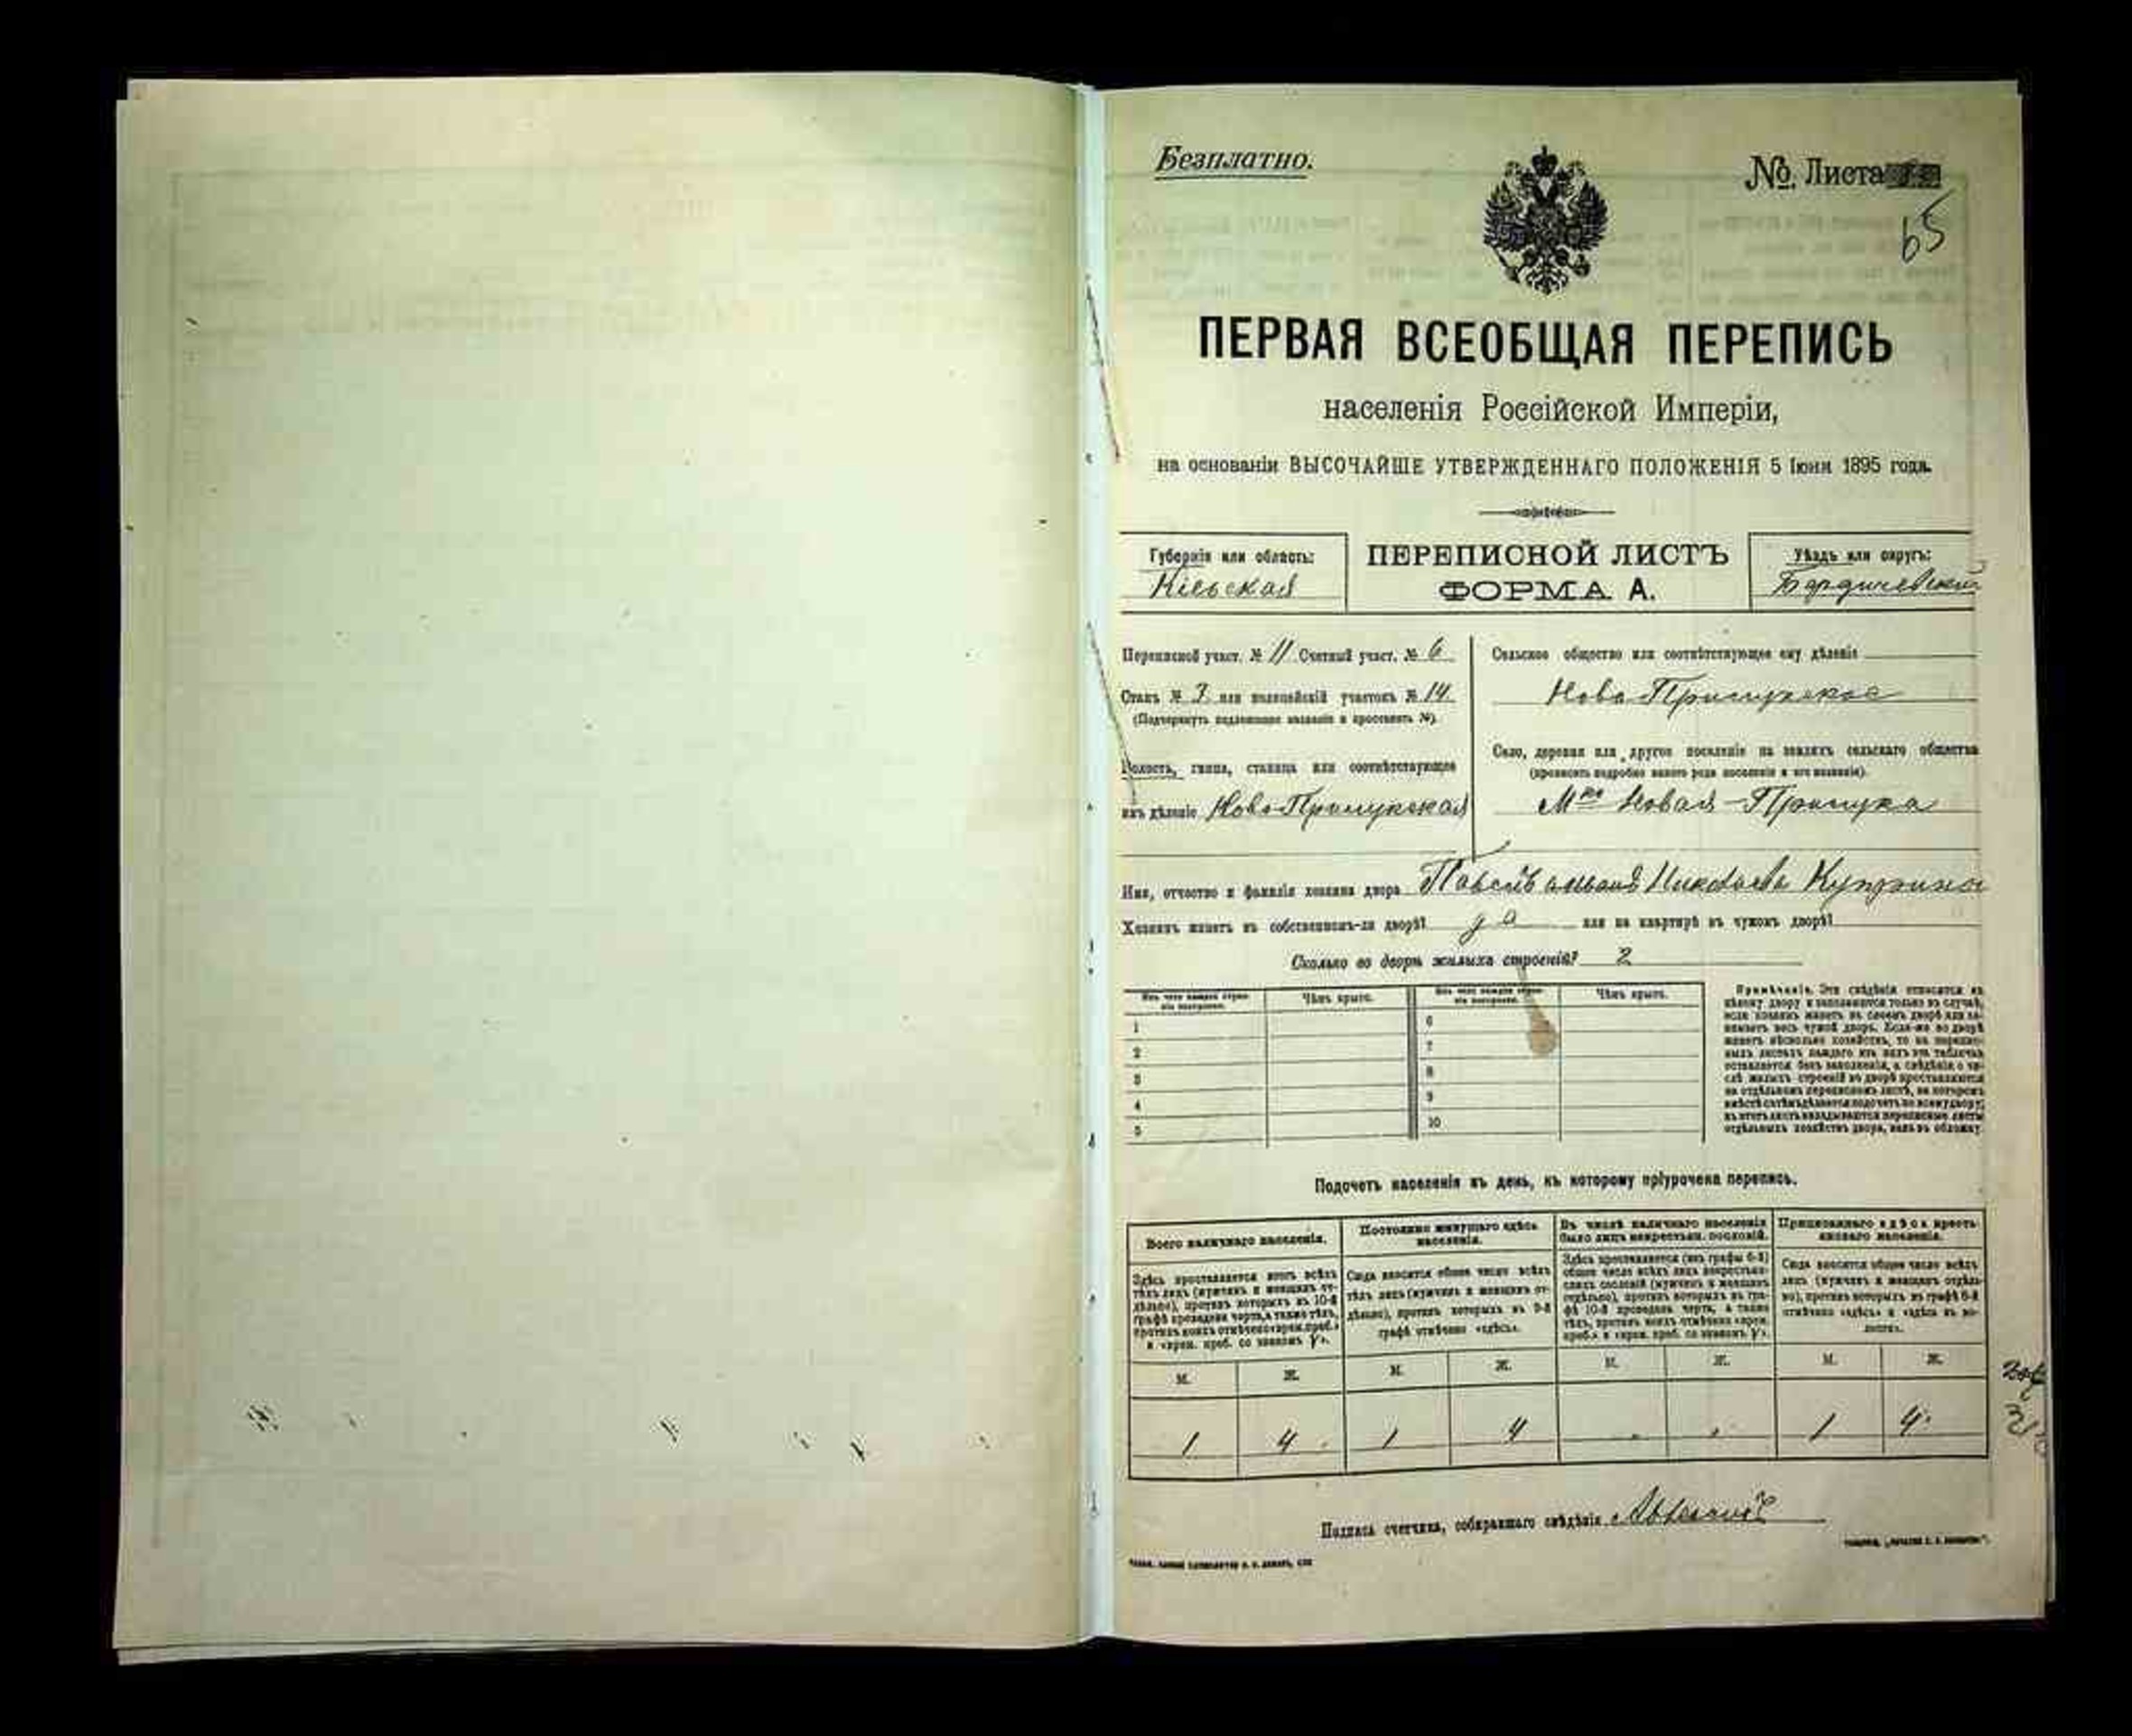 Безплатно.
№. Листа
65
ПЕРВАЯ ВСЕОБЩАЯ ПЕРЕПИСЬ
населенія Россійской Имперіи,
на основаніи ВЫСОЧАЙШЕ УТВЕРЖДЕННАГО ПОЛОЖЕНІЯ 5 Іюня 1895 года.
Губернія или область:
Кіевская
ПЕРЕПИСНОЙ ЛИСТЪ
ФОРМА А.
Уѣздъ или округъ:
Бердичевскій
Переписной участ. № 11 Счетный участ. № 6
Станъ № 3 или полицейскій участокъ № 14
(Подчеркнуть подлежащее названіе и проставить №).
Волость, гмина, станица или соотвѣтствующее
имъ дѣленіе Ново-Прилукская
Сельское общество или соотвѣтствующее ему дѣленіе
Ново-Прилукское
Село, деревня или другое поселеніе на земляхъ сельскаго общества
(прописать подробно какого рода поселеніе и его названіе).
М-ко Новая-Прилука
Имя, отчество и фамилія хозяина двора
Хозяинъ живетъ въ собственномъ-ли дворѣ? да или на квартирѣ въ чужомъ дворѣ?
Сколько во дворѣ жилыхъ строеній? 2
Изъ чего каждое строеніе построено. Чѣмъ крыто. Изъ чего каждое строеніе построено. Чѣмъ крыто.
1 6
2 7
3 8
4 9
5 10
Примѣчаніе. Эти свѣдѣнія относятся къ
цѣлому двору и заполняются только въ случаѣ,
если хозяинъ живетъ въ своемъ дворѣ или за-
нимаетъ весь чужой дворъ. Если-же во дворѣ
живетъ нѣсколько хозяйствъ, то на перепис-
ныхъ листахъ каждаго изъ нихъ эта табличка
оставляется безъ заполненія, а свѣдѣнія о чи-
слѣ жилыхъ строеній во дворѣ проставляются
на отдѣльномъ переписномъ листѣ, на которомъ
вмѣстѣ съ тѣмъ дѣлается подсчетъ по всему двору;
въ этотъ листъ вкладываются переписные листы
отдѣльныхъ хозяйствъ двора, какъ въ обложку.
Подсчетъ населенія въ день, къ которому пріурочена перепись.
Всего наличнаго населенія.
Здѣсь проставляется итогъ всѣхъ
тѣхъ лицъ (мужчинъ и женщинъ от-
дѣльно), противъ которыхъ въ 10-й
графѣ проведена черта, а также тѣхъ,
противъ коихъ отмѣчено «врем. преб.»
и «врем. преб. со знакомъ V».
Постоянно живущаго здѣсь
населенія.
Сюда вносится общее число всѣхъ
тѣхъ лицъ (мужчинъ и женщинъ от-
дѣльно), противъ которыхъ въ 9-й
графѣ отмѣчено «здѣсь».
Въ числѣ наличнаго населенія
было лицъ некрестьян. сословій.
Здѣсь проставляется (изъ графы 6-й)
общее число всѣхъ лицъ некрестьян-
скихъ сословій (мужчинъ и женщинъ
отдѣльно), противъ которыхъ въ гра-
фѣ 10-й проведена черта, а также
тѣхъ, противъ коихъ отмѣчено «врем.
преб.» и «врем. преб. со знакомъ V».
Приписаннаго здѣсь кресть-
янскаго населенія.
Сюда вносится общее число всѣхъ
лицъ (мужчинъ и женщинъ отдѣль-
но), противъ которыхъ въ графѣ 8-й
отмѣчено «здѣсь» и «здѣсь въ во-
лости».
М. Ж. М. Ж. М. Ж. М. Ж.
1 4 1 4 1 4
Подпись счетчика, собиравшаго свѣдѣнія